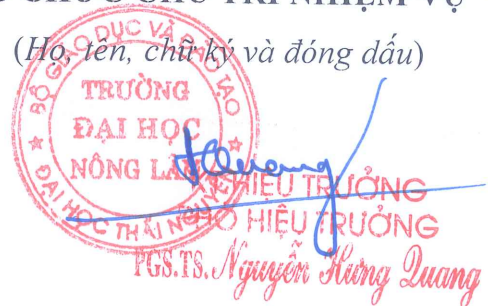 CHỦ TRÌ NHIỆM VỤ
(Họ, tên, chữ ký và đóng dấu)
BỘ GIÁO DỤC VÀ ĐÀO TẠO
TRƯỜNG
ĐẠI HỌC
NÔNG LÂM
ĐẠI HỌC THÁI NGUYÊN
HIỆU TRƯỞNG
PHÓ HIỆU TRƯỞNG
PGS.TS. Nguyễn Hưng Quang